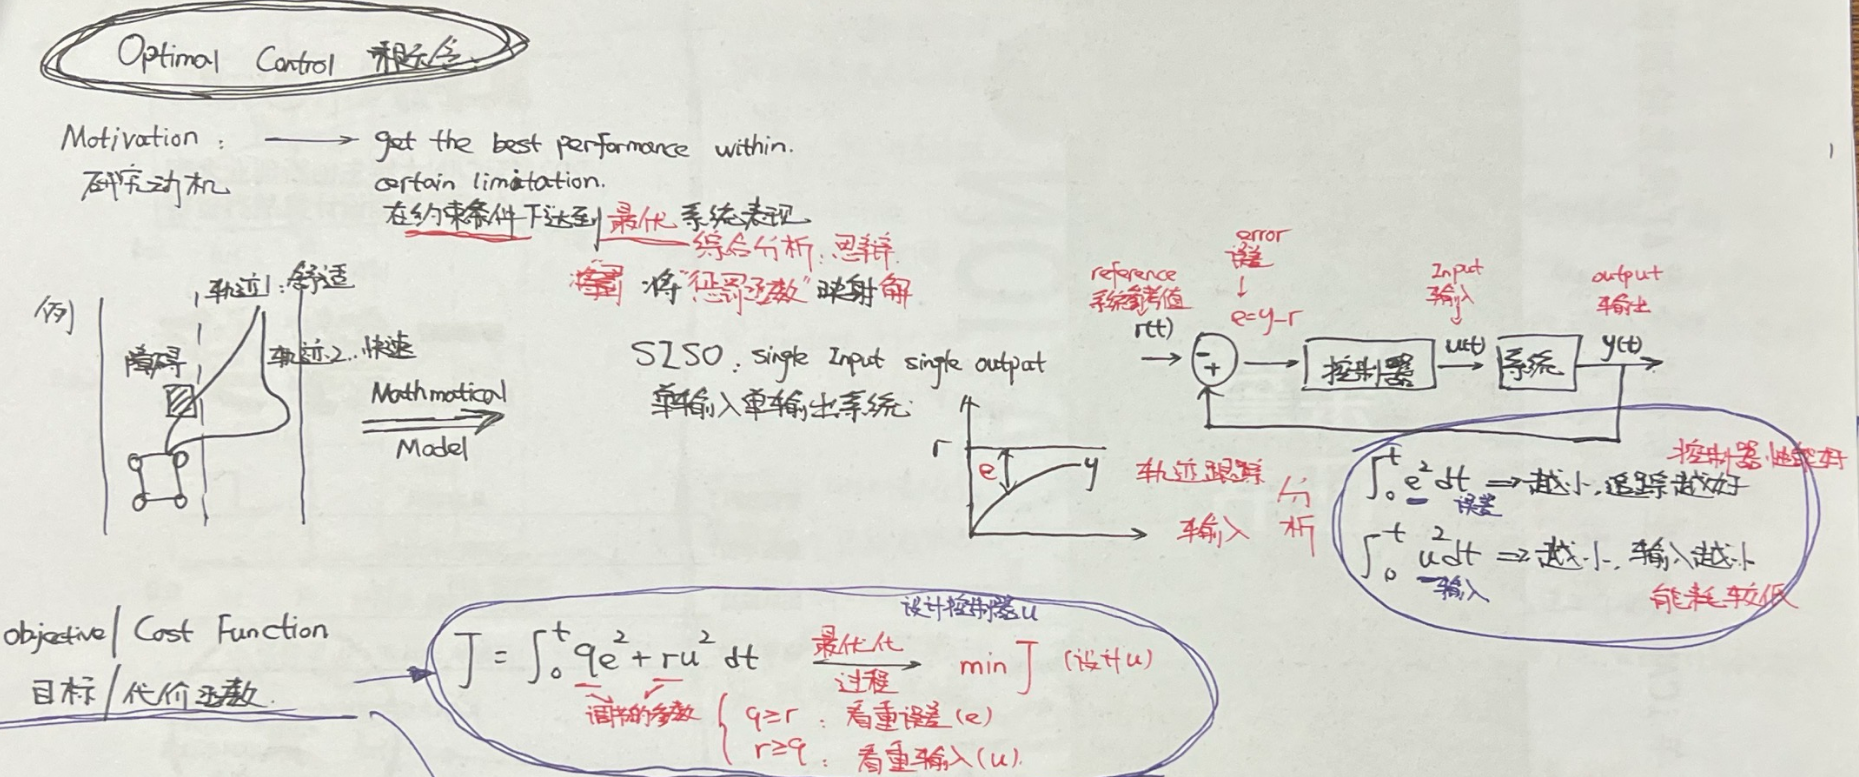 Optimal Control 概念.
Motivation : → get the best performance within.
研究动机 certain limitation.
在约束条件下达到最优系统表现
综合分析:思辩
将"惩罚函数"映射解
例
轨迹1:舒适
障碍
轨迹2..快速
Mathmatical
Model
SISO: single Input single output
单输入单输出系统.
r
e
y
轨迹跟踪
输入
分析
reference
系统参考值
r(t)
error
误差
↓
e=y-r
-
+
控制器
Input
输入
u(t)
系统
output
输出
y(t)
控制器性能好
∫₀ᵗ e² dt ⇒ 越小,追踪越好
误差
∫₀ᵗ u² dt ⇒ 越小,输入越小
输入
能耗较低
objective/ Cost Function
目标/代价函数.
设计控制器u
J = ∫₀ᵗ qe² + ru² dt 最优化过程 → min J (设计u)
调节的参数
q≥r : 看重误差(e)
r≥q : 看重输入(u).